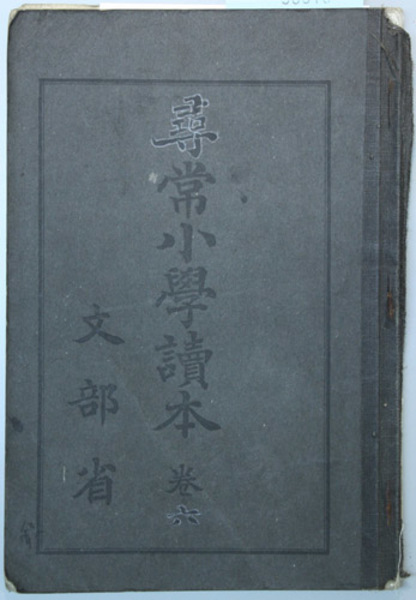 尋常小學讀本 卷六
文部省